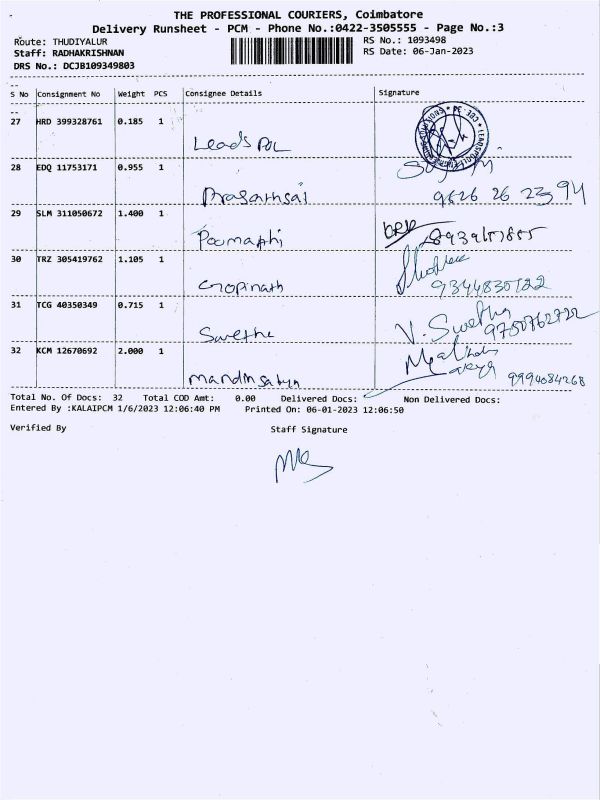 THE PROFESSIONAL COURIERS, Coimbatore
Delivery Runsheet - PCM - Phone No.:0422-3505555 - Page No.:3
Route: THUDIYALUR
RS No.: 1093498
Staff: RADHAKRISHNAN
RS Date: 06-Jan-2023
DRS No.: DCJB109349803
S No Consignment No Weight PCS Consignee Details Signature
27 HRD 399328761 0.185 1
Leads
28 EDQ 11753171 0.955 1
Prasathsai 9626 26 2394
29 SLM 311050672 1.400 1
30 TRZ 305419762 1.105 1
Gopinath
31 TCG 40350349 0.715 1
Swetha V. Swetha 9750762722
32 KCM 12670692 2.000 1
9994084268
Total No. Of Docs: 32 Total COD Amt: 0.00 Delivered Docs: Non Delivered Docs:
Entered By :KALAIPCM 1/6/2023 12:06:40 PM Printed On: 06-01-2023 12:06:50
Verified By Staff Signature